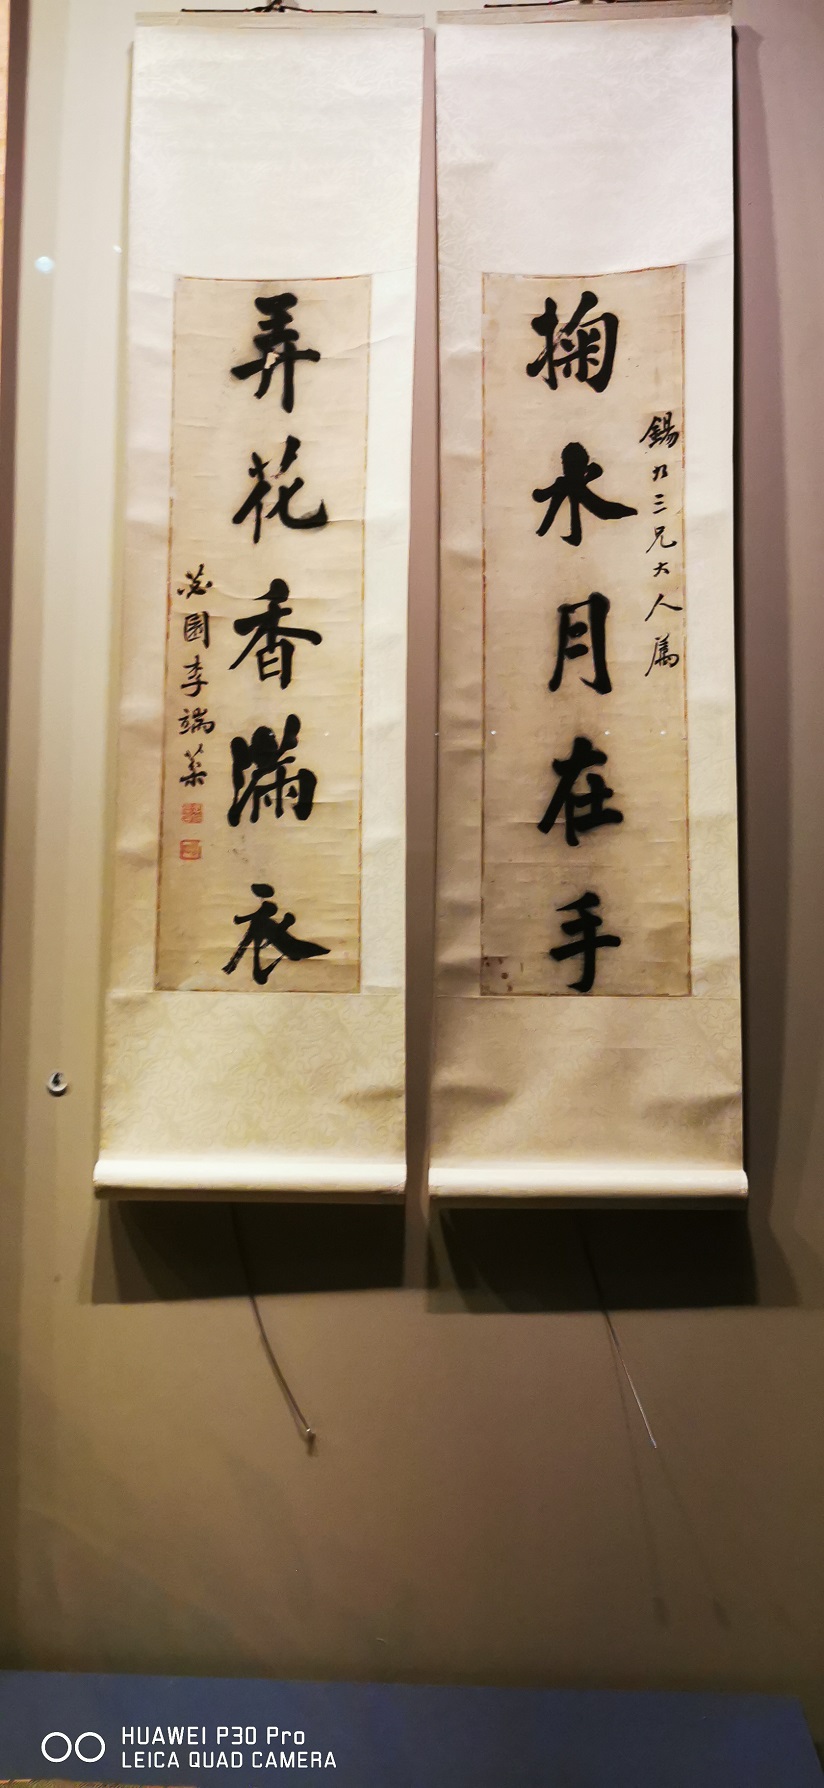 掬水月在手
錫九三兄大人屬
弄花香滿衣
苾園李端棻
HUAWEI P30 Pro
LEICA QUAD CAMERA